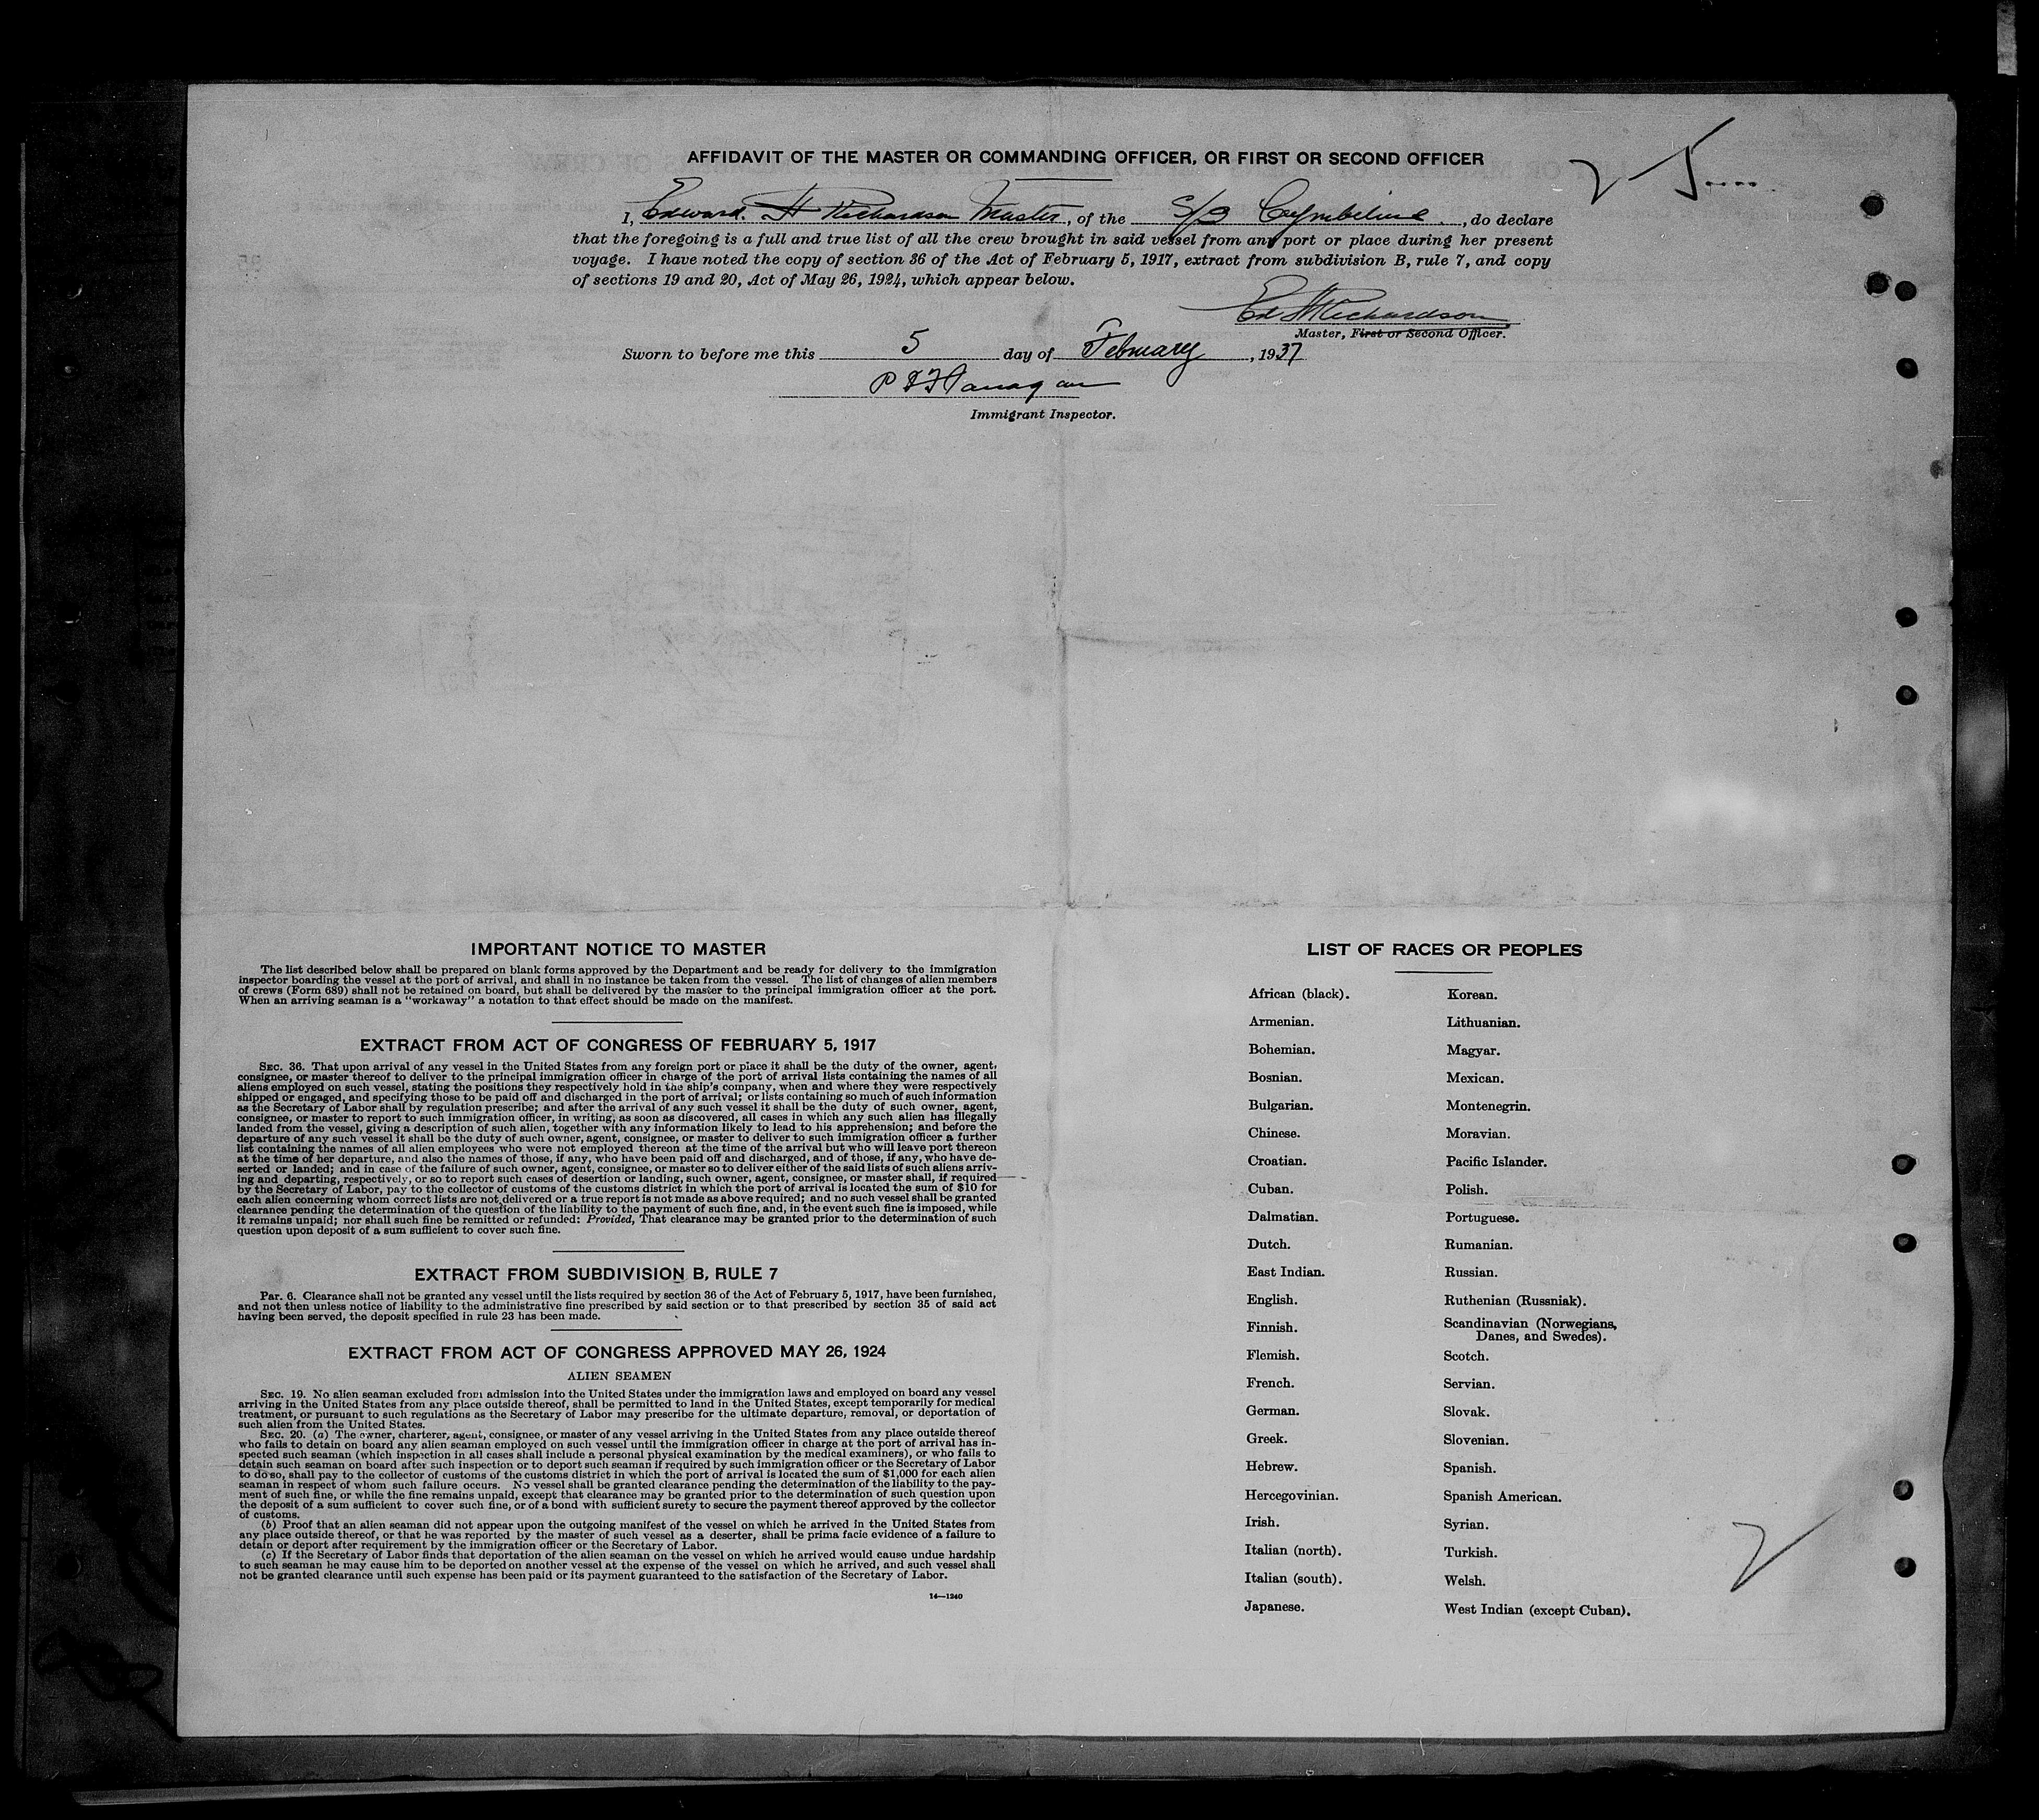 AFFIDAVIT OF THE MASTER OR COMMANDING OFFICER, OR FIRST OR SECOND OFFICER
I, Edward. H Richardson Master, of the S/S Cymbeline, do declare
that the foregoing is a full and true list of all the crew brought in said vessel from any port or place during her present
voyage. I have noted the copy of section 36 of the Act of February 5, 1917, extract from subdivision B, rule 7, and copy
of sections 19 and 20, Act of May 26, 1924, which appear below.
Ed H Richardson
Master, First or Second Officer.
Sworn to before me this 5 day of February, 1937
Flanagan
Immigrant Inspector.
IMPORTANT NOTICE TO MASTER
The list described below shall be prepared on blank forms approved by the Department and be ready for delivery to the immigration
inspector boarding the vessel at the port of arrival, and shall in no instance be taken from the vessel. The list of changes of alien members
of crews (Form 689) shall not be retained on board, but shall be delivered by the master to the principal immigration officer at the port.
When an arriving seaman is a "workaway" a notation to that effect should be made on the manifest.
EXTRACT FROM ACT OF CONGRESS OF FEBRUARY 5, 1917
SEC. 36. That upon arrival of any vessel in the United States from any foreign port or place it shall be the duty of the owner, agent,
consignee, or master thereof to deliver to the principal immigration officer in charge of the port of arrival lists containing the names of all
aliens employed on such vessel, stating the positions they respectively hold in the ship's company, when and where they were respectively
shipped or engaged, and specifying those to be paid off and discharged in the port of arrival; or lists containing so much of such information
as the Secretary of Labor shall by regulation prescribe; and after the arrival of any such vessel it shall be the duty of such owner, agent,
consignee, or master to report to such immigration officer, in writing, as soon as discovered, all cases in which any such alien has illegally
landed from the vessel, giving a description of such alien, together with any information likely to lead to his apprehension; and before the
departure of any such vessel it shall be the duty of such owner, agent, consignee, or master to deliver to such immigration officer a further
list containing the names of all alien employees who were not employed thereon at the time of the arrival but who will leave port thereon
at the time of her departure, and also the names of those, if any, who have been paid off and discharged, and of those, if any, who have de-
serted or landed; and in case of the failure of such owner, agent, consignee, or master so to deliver either of the said lists of such aliens arriv-
ing and departing, respectively, or so to report such cases of desertion or landing, such owner, agent, consignee, or master shall, if required
by the Secretary of Labor, pay to the collector of customs of the customs district in which the port of arrival is located the sum of $10 for
each alien concerning whom correct lists are not delivered or a true report is not made as above required; and no such vessel shall be granted
clearance pending the determination of the question of the liability to the payment of such fine, and, in the event such fine is imposed, while
it remains unpaid; nor shall such fine be remitted or refunded: Provided, That clearance may be granted prior to the determination of such
question upon deposit of a sum sufficient to cover such fine.
EXTRACT FROM SUBDIVISION B, RULE 7
Par. 6. Clearance shall not be granted any vessel until the lists required by section 36 of the Act of February 5, 1917, have been furnished,
and not then unless notice of liability to the administrative fine prescribed by said section or to that prescribed by section 35 of said act
having been served, the deposit specified in rule 23 has been made.
EXTRACT FROM ACT OF CONGRESS APPROVED MAY 26, 1924
ALIEN SEAMEN
SEC. 19. No alien seaman excluded from admission into the United States under the immigration laws and employed on board any vessel
arriving in the United States from any place outside thereof, shall be permitted to land in the United States, except temporarily for medical
treatment, or pursuant to such regulations as the Secretary of Labor may prescribe for the ultimate departure, removal, or deportation of
such alien from the United States.
SEC. 20. (a) The owner, charterer, agent, consignee, or master of any vessel arriving in the United States from any place outside thereof
who fails to detain on board any alien seaman employed on such vessel until the immigration officer in charge at the port of arrival has in-
spected such seaman (which inspection in all cases shall include a personal physical examination by the medical examiners), or who fails to
detain such seaman on board after such inspection or to deport such seaman if required by such immigration officer or the Secretary of Labor
to do so, shall pay to the collector of customs of the customs district in which the port of arrival is located the sum of $1,000 for each alien
seaman in respect of whom such failure occurs. No vessel shall be granted clearance pending the determination of the liability to the pay-
ment of such fine, or while the fine remains unpaid, except that clearance may be granted prior to the determination of such question upon
the deposit of a sum sufficient to cover such fine, or of a bond with sufficient surety to secure the payment thereof approved by the collector
of customs.
(b) Proof that an alien seaman did not appear upon the outgoing manifest of the vessel on which he arrived in the United States from
any place outside thereof, or that he was reported by the master of such vessel as a deserter, shall be prima facie evidence of a failure to
detain or deport after requirement by the immigration officer or the Secretary of Labor.
(c) If the Secretary of Labor finds that deportation of the alien seaman on the vessel on which he arrived would cause undue hardship
to such seaman he may cause him to be deported on another vessel at the expense of the vessel on which he arrived, and such vessel shall
not be granted clearance until such expense has been paid or its payment guaranteed to the satisfaction of the Secretary of Labor.
14—1240
LIST OF RACES OR PEOPLES
African (black).
Armenian.
Bohemian.
Bosnian.
Bulgarian.
Chinese.
Croatian.
Cuban.
Dalmatian.
Dutch.
East Indian.
English.
Finnish.
Flemish.
French.
German.
Greek.
Hebrew.
Hercegovinian.
Irish.
Italian (north).
Italian (south).
Japanese.
Korean.
Lithuanian.
Magyar.
Mexican.
Montenegrin.
Moravian.
Pacific Islander.
Polish.
Portuguese.
Rumanian.
Russian.
Ruthenian (Russniak).
Scandinavian (Norwegians,
Danes, and Swedes).
Scotch.
Servian.
Slovak.
Slovenian.
Spanish.
Spanish American.
Syrian.
Turkish.
Welsh.
West Indian (except Cuban).